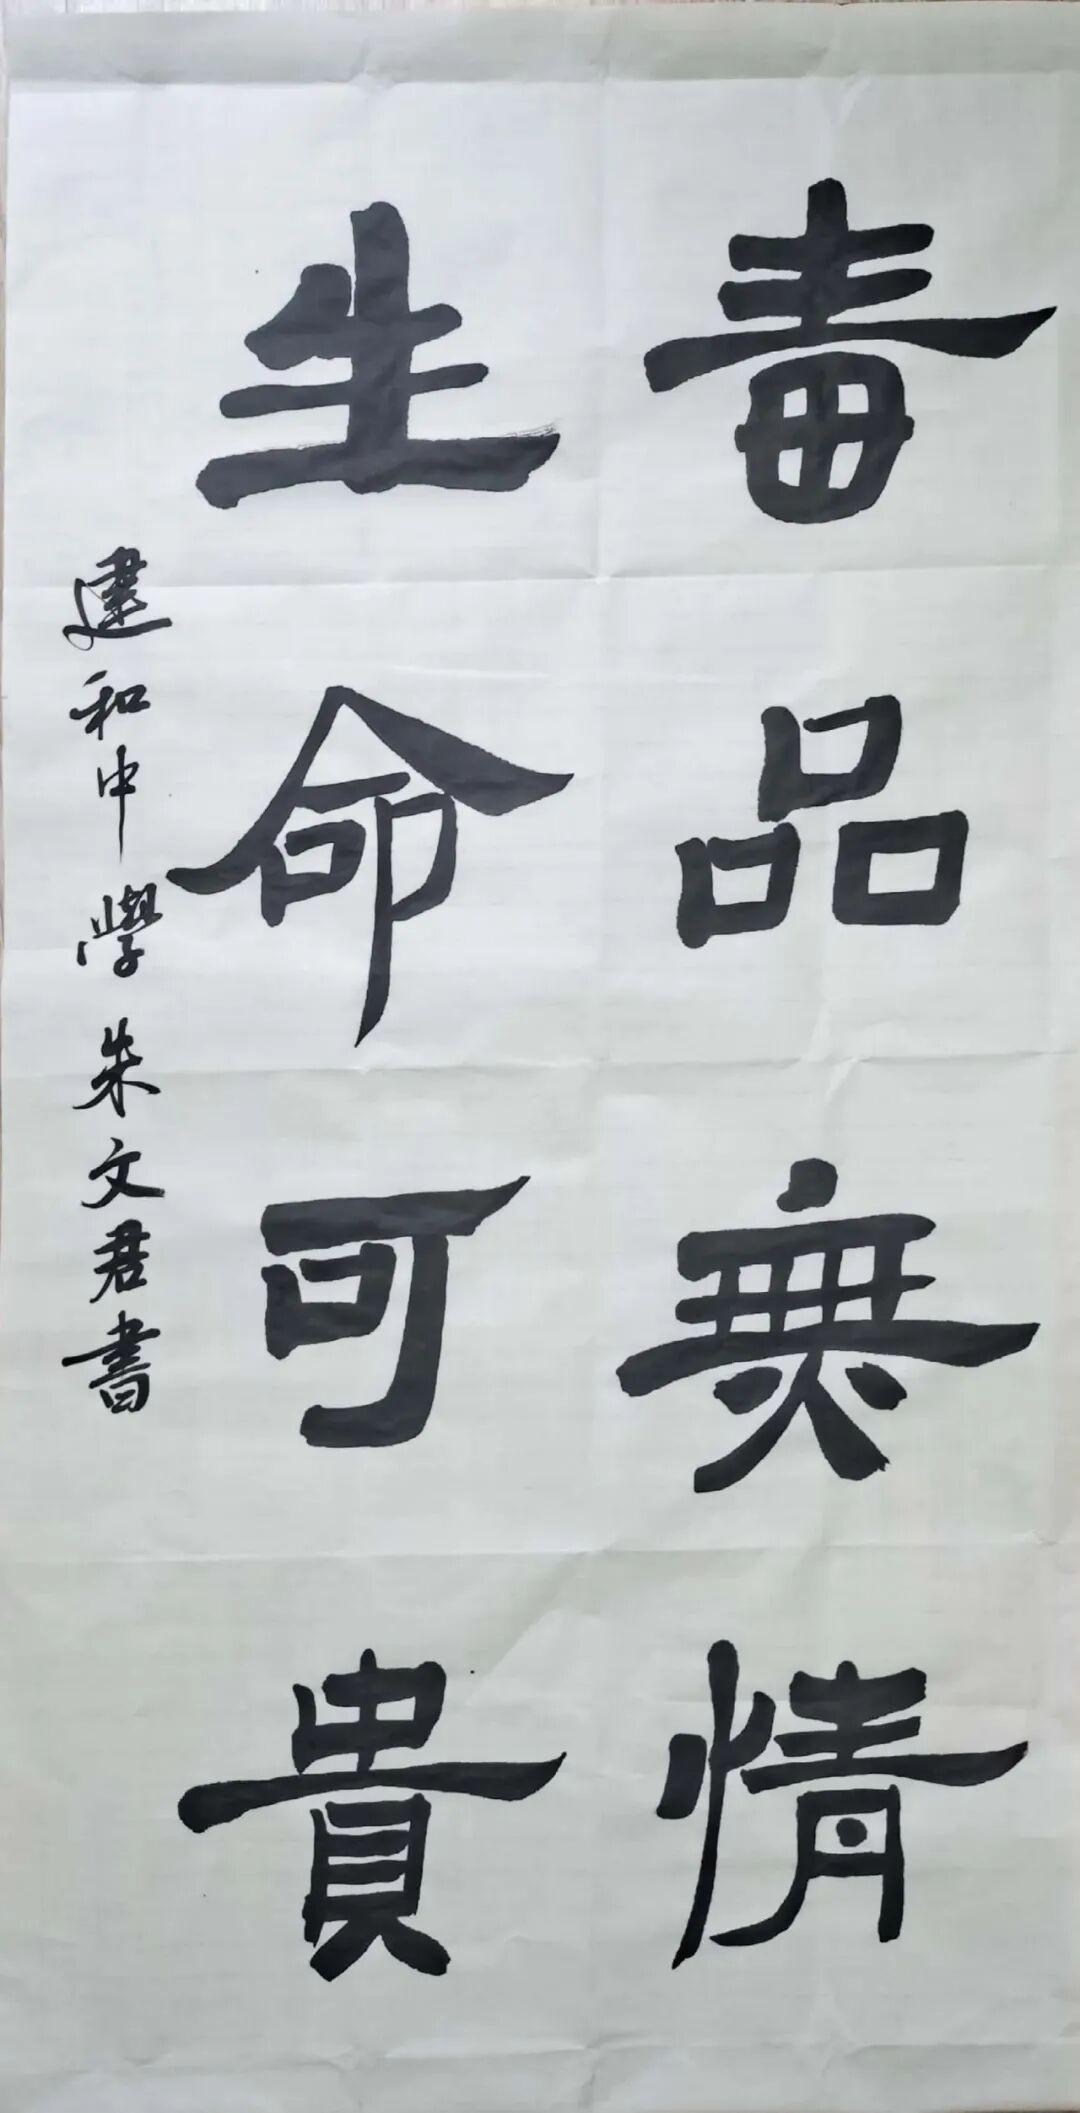 毒品無情
生命可貴
建和中學朱文君書